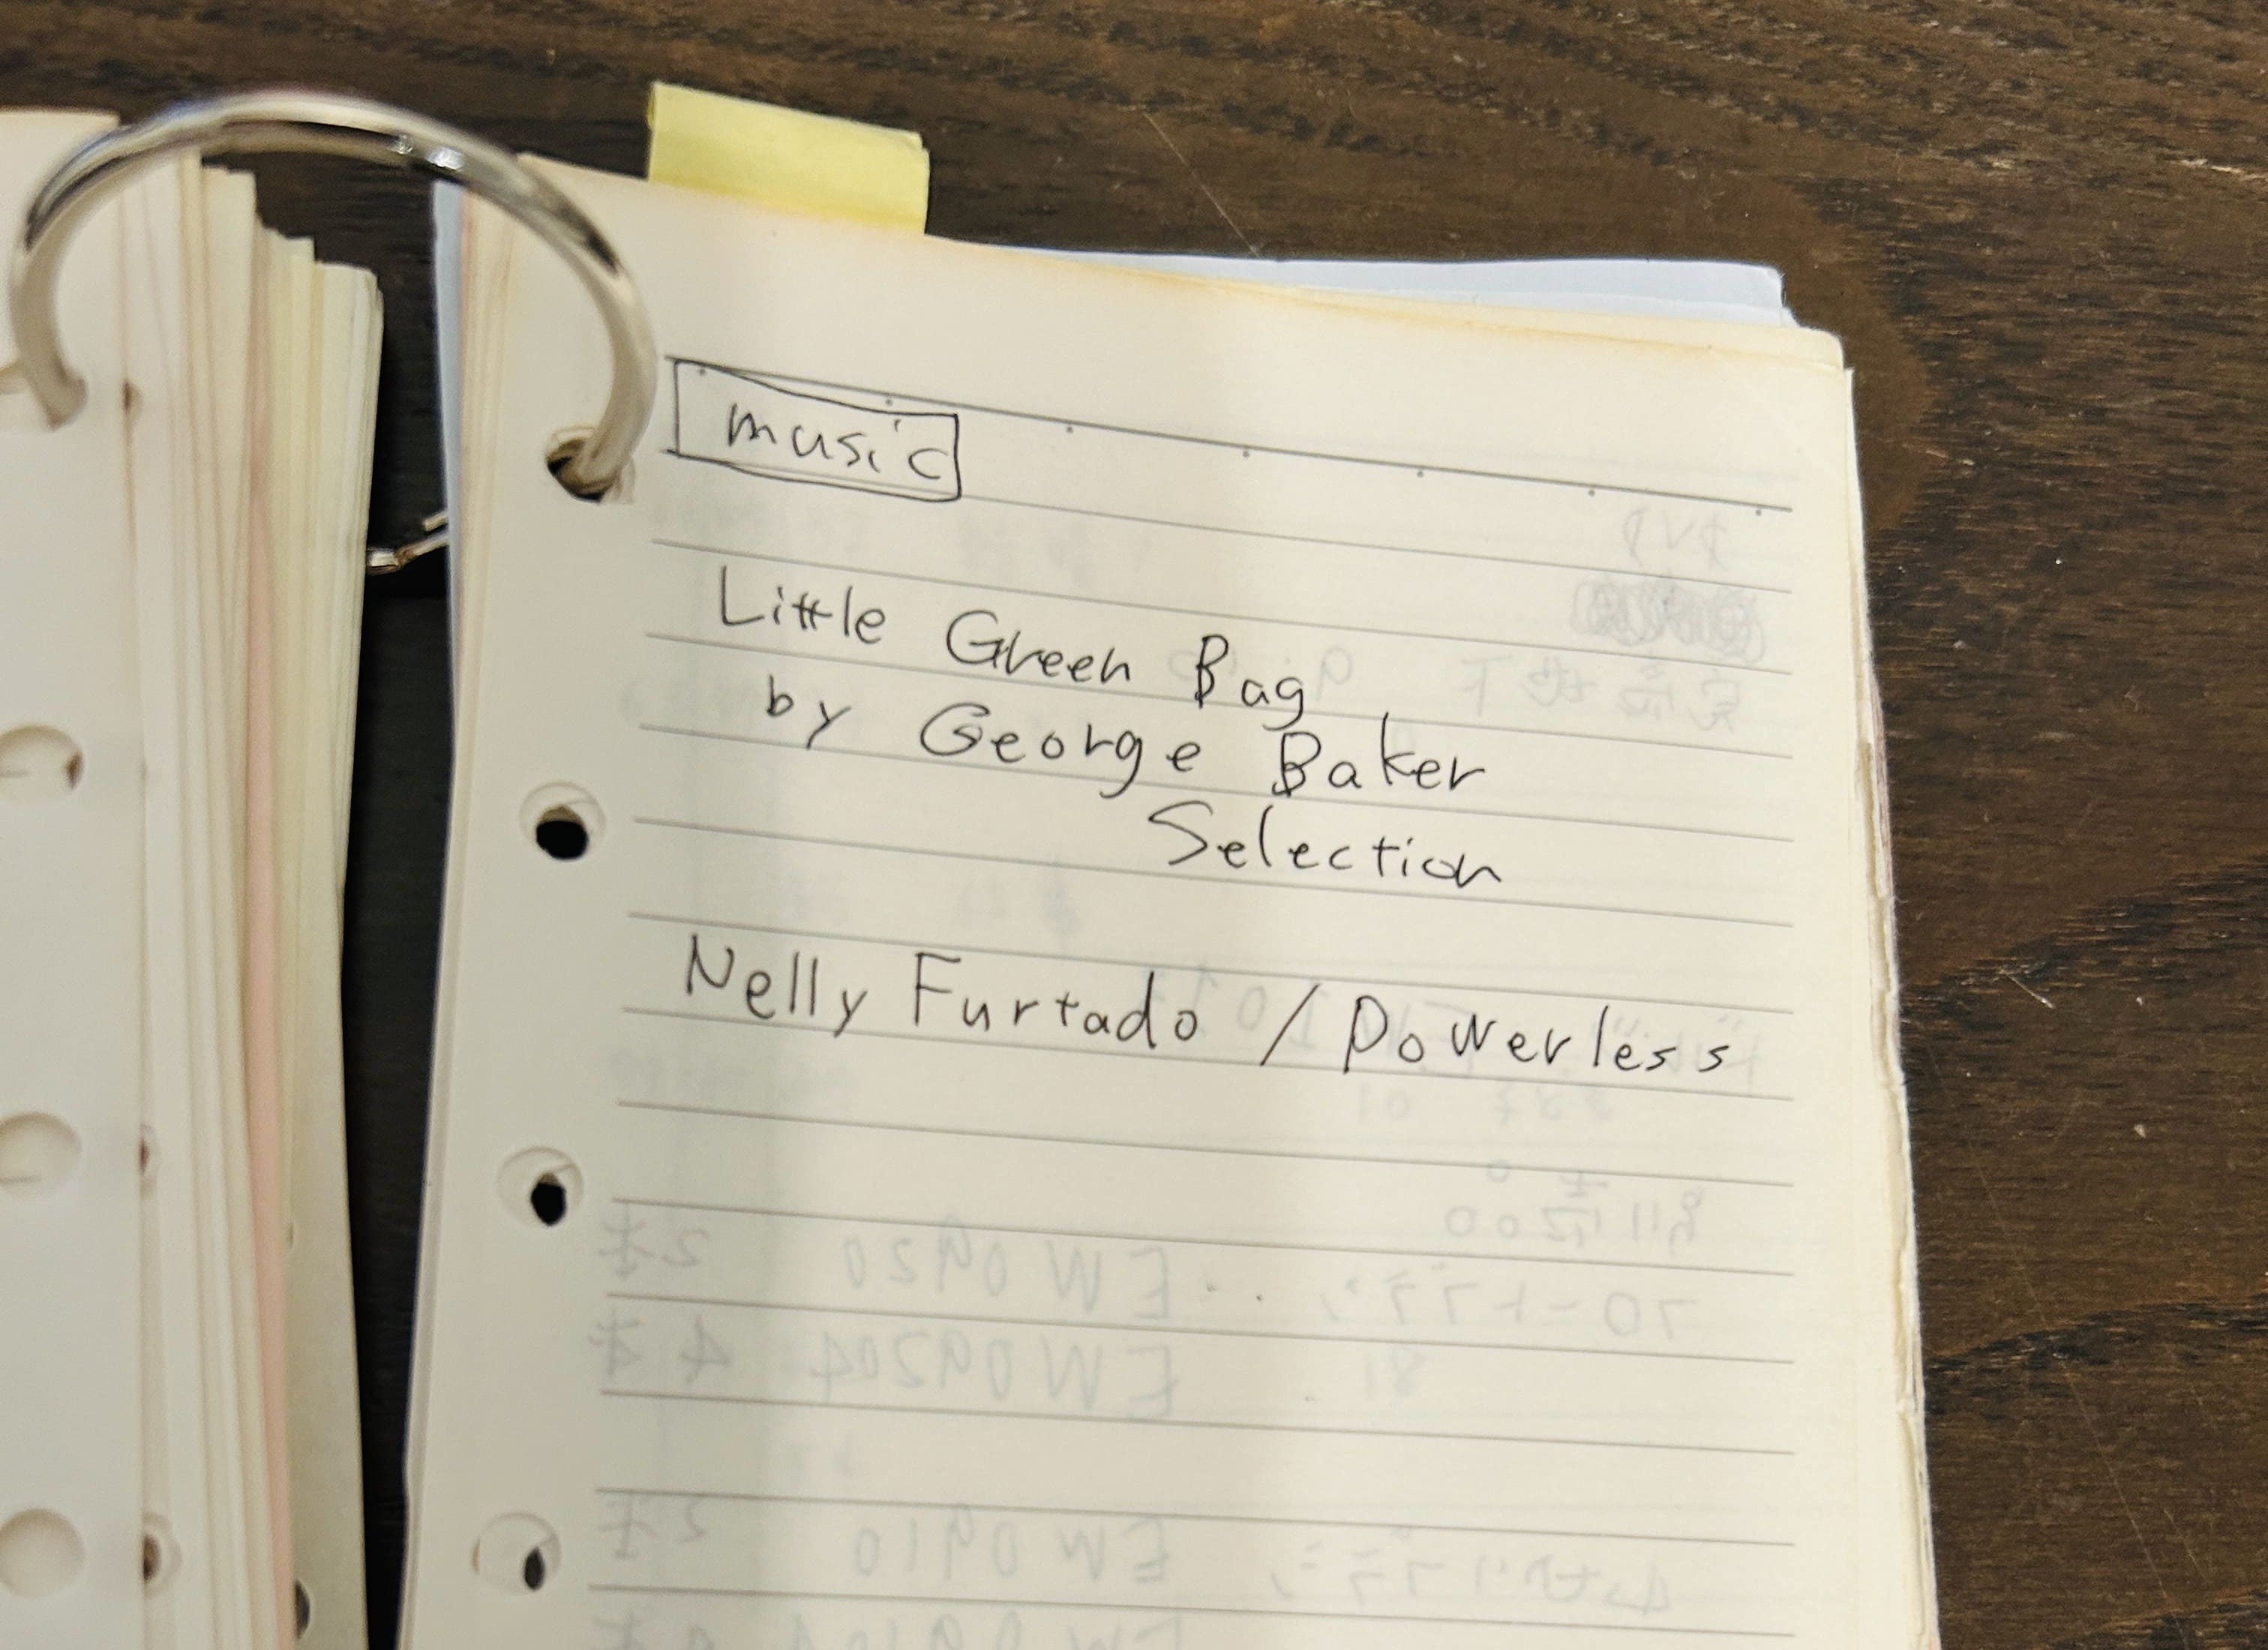 music
Little Green Bag
by George Baker
Selection
Nelly Furtado / Powerless